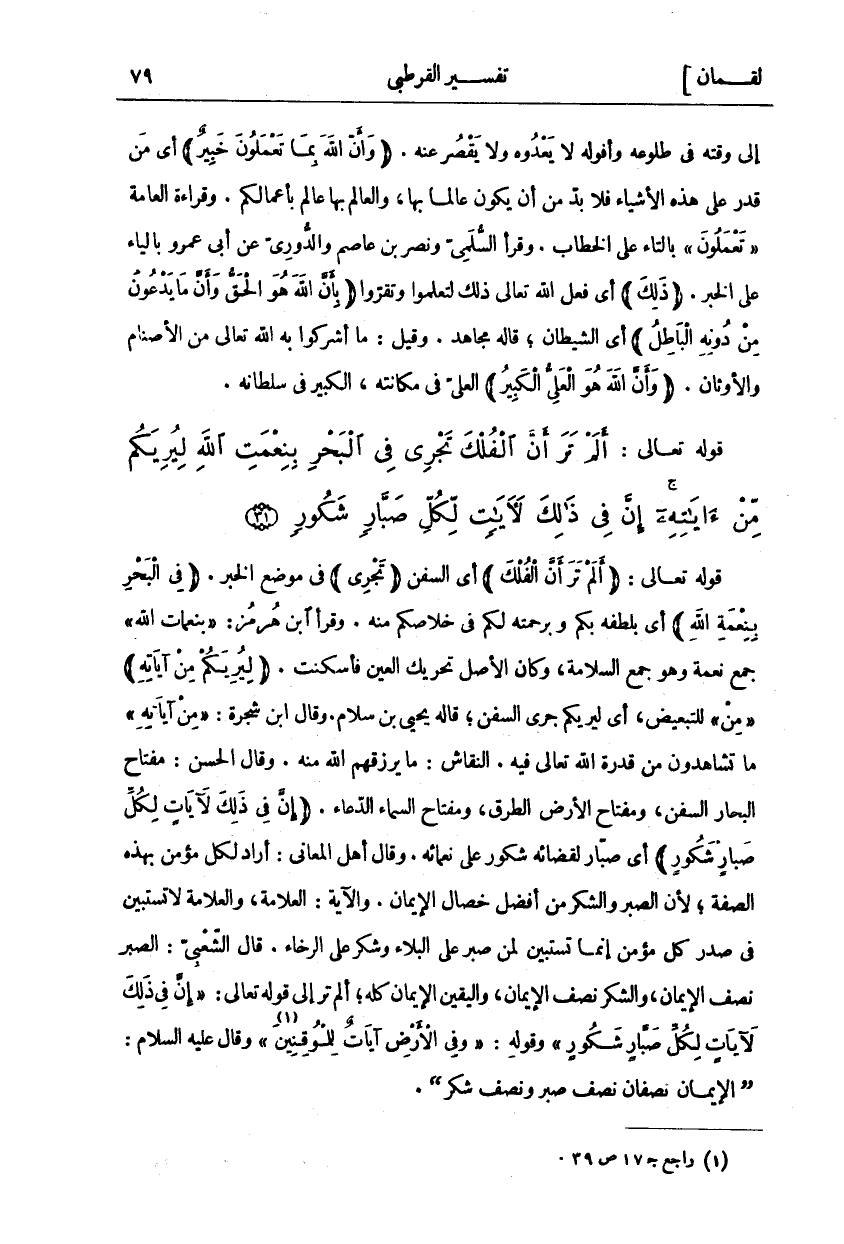 لقمان ]
تفسير القرطبى
٧٩
إلى وقته فى طلوعه وأفوله لا يَعْدُوه ولا يَقْصُر عنه . ﴿ وَأَنَّ اللّهَ بِمَا تَعْمَلُونَ خَبِيرٌ ﴾ أى مَن
قدر على هذه الأشياء فلا بدّ من أن يكون عالما بها، والعالم بها عالم بأعمالكم . وقراءة العامة
« تَعْمَلُونَ » بالتاء على الخطاب . وقرأ السُّلَمِىّ ونصر بن عاصم والدُّورىّ عن أبى عمرو بالياء
على الخبر . ﴿ ذَلِكَ ﴾ أى فعل الله تعالى ذلك لتعلموا وتقرّوا ﴿ بِأَنَّ اللّهَ هُوَ الْحَقُّ وَأَنَّ مَا يَدْعُونَ
مِنْ دُونِهِ الْبَاطِلُ ﴾ أى الشيطان ؛ قاله مجاهد . وقيل : ما أشركوا به الله تعالى من الأصنام
والأوثان . ﴿ وَأَنَّ اللّهَ هُوَ الْعَلِىُّ الْكَبِيرُ ﴾ العلىّ فى مكانته ، الكبير فى سلطانه .
قوله تعالى : أَلَمْ تَرَ أَنَّ ٱلْفُلْكَ تَجْرِى فِى ٱلْبَحْرِ بِنِعْمَتِ ٱللَّهِ لِيُرِيَكُم
مِّنْ ءَايَـٰتِهِۦٓ ۚ إِنَّ فِى ذَٰلِكَ لَـَٔايَـٰتٍ لِّكُلِّ صَبَّارٍ شَكُورٍ ﴿٣١﴾
قوله تعالى : ﴿ أَلَمْ تَرَ أَنَّ الْفُلْكَ ﴾ أى السفن ﴿ تَجْرِى ﴾ فى موضع الخبر . ﴿ فِى الْبَحْرِ
بِنِعْمَةِ اللّهِ ﴾ أى بلطفه بكم وبرحمته لكم فى خلاصكم منه . وقرأ ٱبن هُرْمُز: «بنعمات الله»
جمع نعمة وهو جمع السلامة، وكان الأصل تحريك العين فأسكنت . ﴿ لِيُرِيَكُمْ مِنْ آيَاتِهِ ﴾
«مِنْ» للتبعيض، أى ليريكم جرى السفن ؛ قاله يحيى بن سلام. وقال ابن شجرة : «مِنْ آيَاتِهِ»
ما تشاهدون من قدرة الله تعالى فيه . النقاش : ما يرزقهم الله منه . وقال الحسن : مفتاح
البحار السفن، ومفتاح الأرض الطرق، ومفتاح السماء الدّعاء . ﴿ إِنَّ فِى ذَلِكَ لَآيَاتٍ لِكُلِّ
صَبَّارٍ شَكُورٍ ﴾ أى صبّار لقضائه شكور على نعمائه . وقال أهل المعانى : أراد لكل مؤمن بهذه
الصفة ؛ لأن الصبر والشكر من أفضل خصال الإيمان . والآية : العلامة، والعلامة لا تستبين
فى صدر كل مؤمن إنما تستبين لمن صبر على البلاء وشكر على الرخاء . قال الشَّعْبِىّ : الصبر
نصف الإيمان، والشكر نصف الإيمان، واليقين الإيمان كله؛ ألم تر إلى قوله تعالى: « إِنَّ فِى ذَلِكَ
لَآيَاتٍ لِكُلِّ صَبَّارٍ شَكُورٍ » وقوله : « وَفِى الْأَرْضِ آيَاتٌ لِلْمُوقِنِينَ (١) » وقال عليه السلام :
" الإيمان نصفان نصف صبر ونصف شكر " .
(١) راجع جـ ١٧ ص ٣٩ .